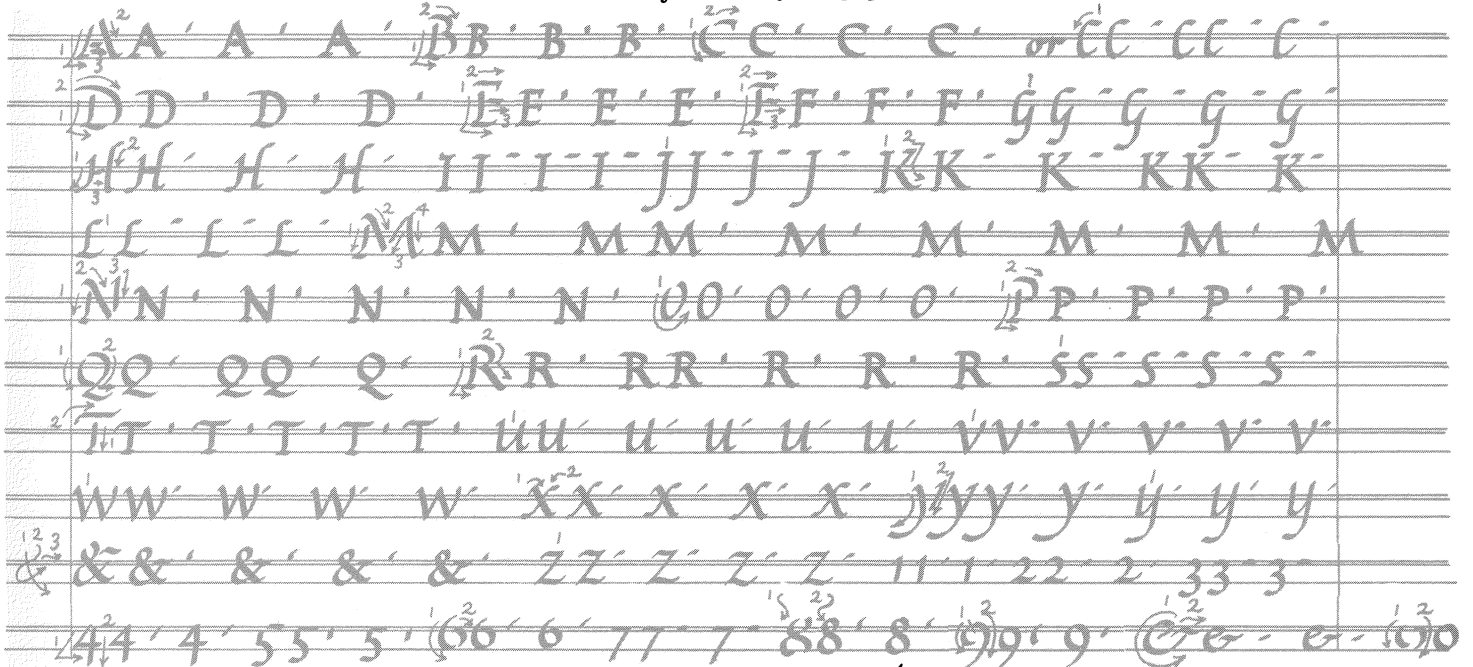 A A A A B B B B C C C C or C C C C C
D D D D E E E E F F F F G G G G G
H H H H I I I I J J J J K K K K K K
L L L L M M M M M M M M
N N N N N N O O O O O P P P P P
Q Q Q Q Q R R R R R R R S S S S S
T T T T T T U U U U U U V V V V V V
W W W W W X X X X X Y Y Y Y Y Y Y
& & & & & Z Z Z Z Z 1 1 1 2 2 2 3 3 3
4 4 4 5 5 5 6 6 6 7 7 7 8 8 8 9 9 9 e e e 0 0